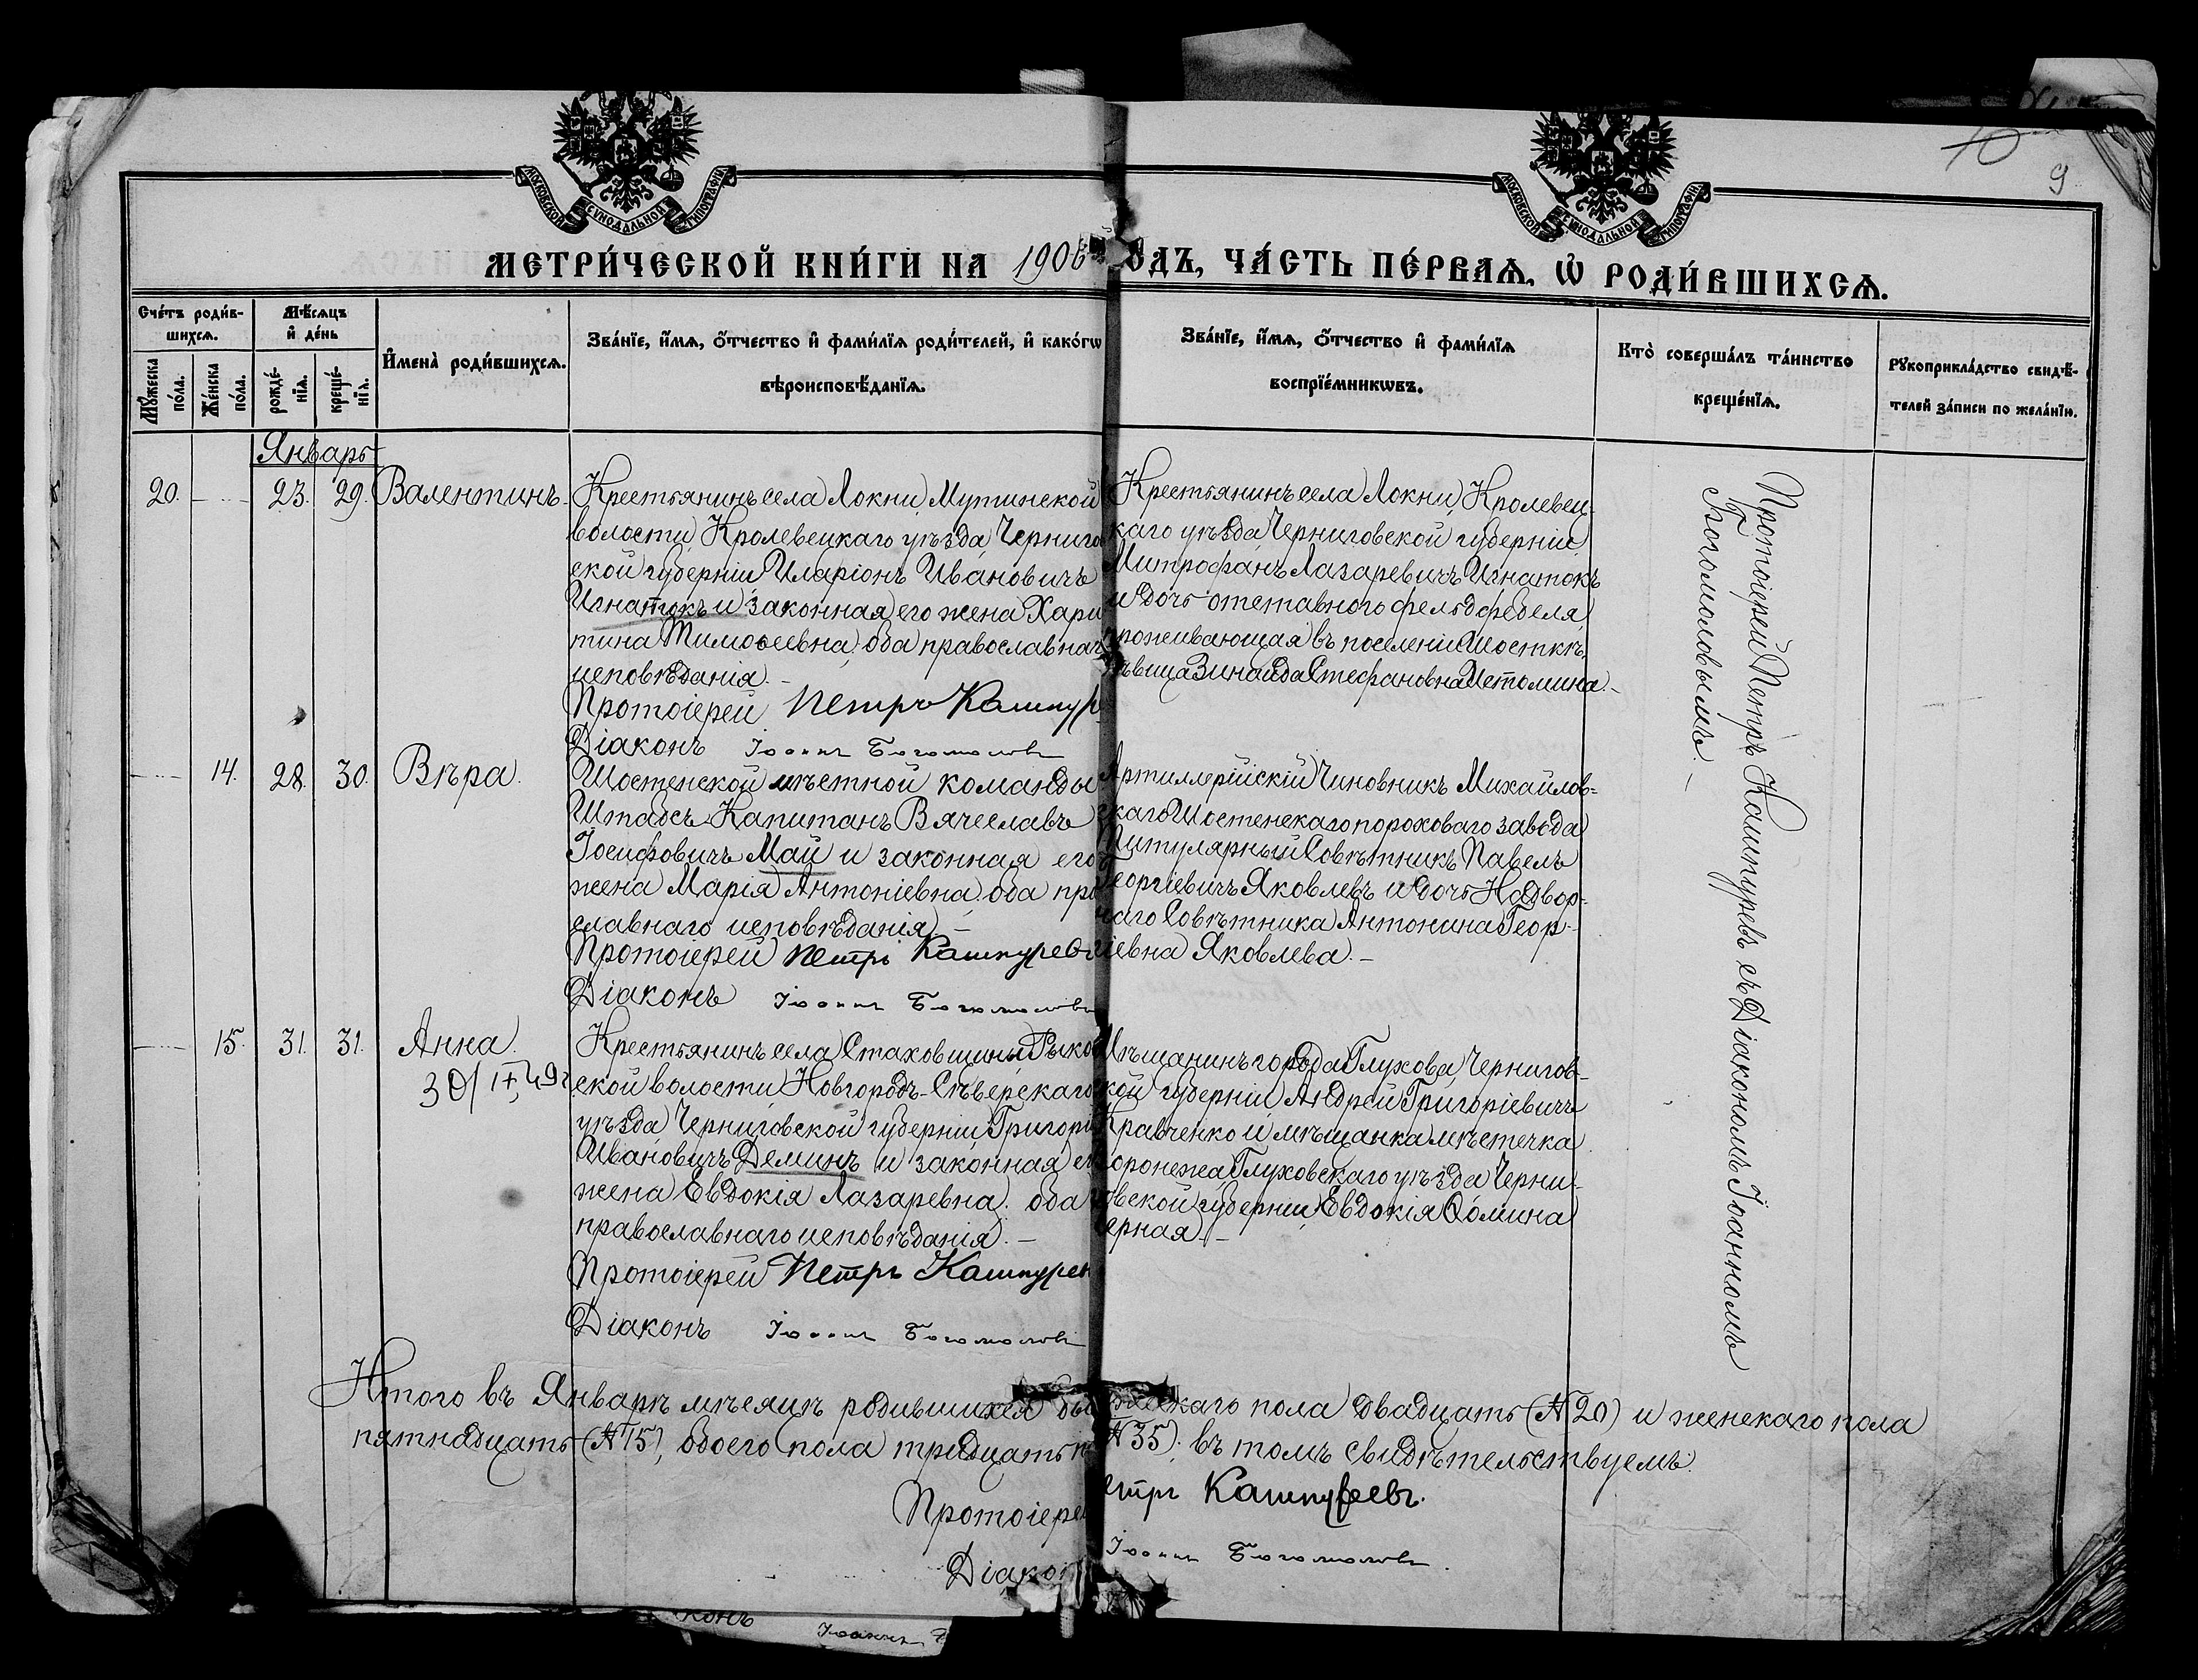 10
9
МОСКОВСКОЙ СѴНОДАЛЬНОЙ ТИПОГРАФІИ
МОСКОВСКОЙ СѴНОДАЛЬНОЙ ТИПОГРАФІИ
МЕТРИ́ЧЕСКОЙ КНИ́ГИ НА 1906 ОДЪ, ЧА́СТЬ ПЕ́РВАѦ, Ѽ РОДИ́ВШИХСѦ.
Сче́тъ роди́в-
шихсѧ.
Мꙋ́жеска по́ла.
Же́нска по́ла.
Мѣ́сѧцъ
и҆ де́нь
рожде́-
нїѧ.
креще́-
нїѧ.
И҆мена̀ роди́вшихсѧ.
Зва́нїе, и҆́мѧ, ѻ҆́тчество и҆ фами́лїѧ роди́телей, и҆ како́гѡ
вѣроисповѣ́данїѧ.
Зва́нїе, и҆́мѧ, ѻ҆́тчество и҆ фами́лїѧ
воспрїе́мникѡвъ.
Кто̀ соверша́лъ та́инство
креще́нїѧ.
Рꙋкоприкла́дство свидѣ́-
телей за́писи по жела́нїю.
Январь
20. 23. 29. Валентинъ.
Крестьянинъ села Локни, Мутинской
волости, Кролевецкаго уѣзда Черниго
ской губерніи Иларіонъ Ивановичъ
Игнатокъ и законная его жена Хари
тина Тимоѳеевна, оба православнаг
исповѣданія. –
Протоіерей Петръ Кашпур
Діаконъ Іоаннъ Богомоловъ
Крестьянинъ села Локни, Кролевец-
каго уѣзда Черниговской губерніи
Митрофанъ Лазаревичъ Игнатокъ
и дочь отставного фельдфебеля,
проживающая въ поселеніи Шосткѣ,
дѣвица Зинаида Стефановна Истомина. –
14. 28. 30. Вѣра.
Шостенской мѣстной команды
Штабсъ-Капитанъ Вячеславъ
Іосифовичъ Май и законная его
жена Марія Антоніевна, оба пра
славнаго исповѣданія. –
Протоіерей Петръ Кашпуревъ
Діаконъ Іоаннъ Богомоловъ
Артиллерійскій Чиновникъ Михайлов-
скаго Шостенскаго пороховаго завода
Титулярный Совѣтникъ Павелъ
Георгіевичъ Яковлевъ и дочь Надвор-
наго Совѣтника Антонина Геор-
гіевна Яковлева. –
15. 31. 31. Анна.
Крестьянинъ села Стаховщины, Рыков
ской волости, Новгородъ-Сѣверскаго
уѣзда Черниговской губерніи Григорій
Ивановичъ Деминъ и законная его
жена Евдокія Лазаревна, оба
православнаго исповѣданія. –
Протоіерей Петръ Кашпурев
Діаконъ Іоаннъ Богомоловъ
Мѣщанинъ города Глухова, Чернигов-
кой губерніи Андрей Григоріевичъ
Кравченко и мѣщанка мѣстечка
Воронежа Глуховскаго уѣзда Черни-
говской губерніи Евдокія Ѳомина
ерная. –
Протоіерей Петръ Кашпуревъ съ Діакономъ Іоанномъ
Богомоловымъ. –
Итого въ Январѣ мѣсяцѣ родившихся бы жескаго пола двадцать (№ 20) и женскаго пола
пятнадцать (№ 15), обоего пола тридцать п № 35). въ томъ свидѣтельствуемъ:
Протоіерей етръ Кашпуреевъ.
Діакон Іоаннъ Богомоловъ.
конъ Іоаннъ